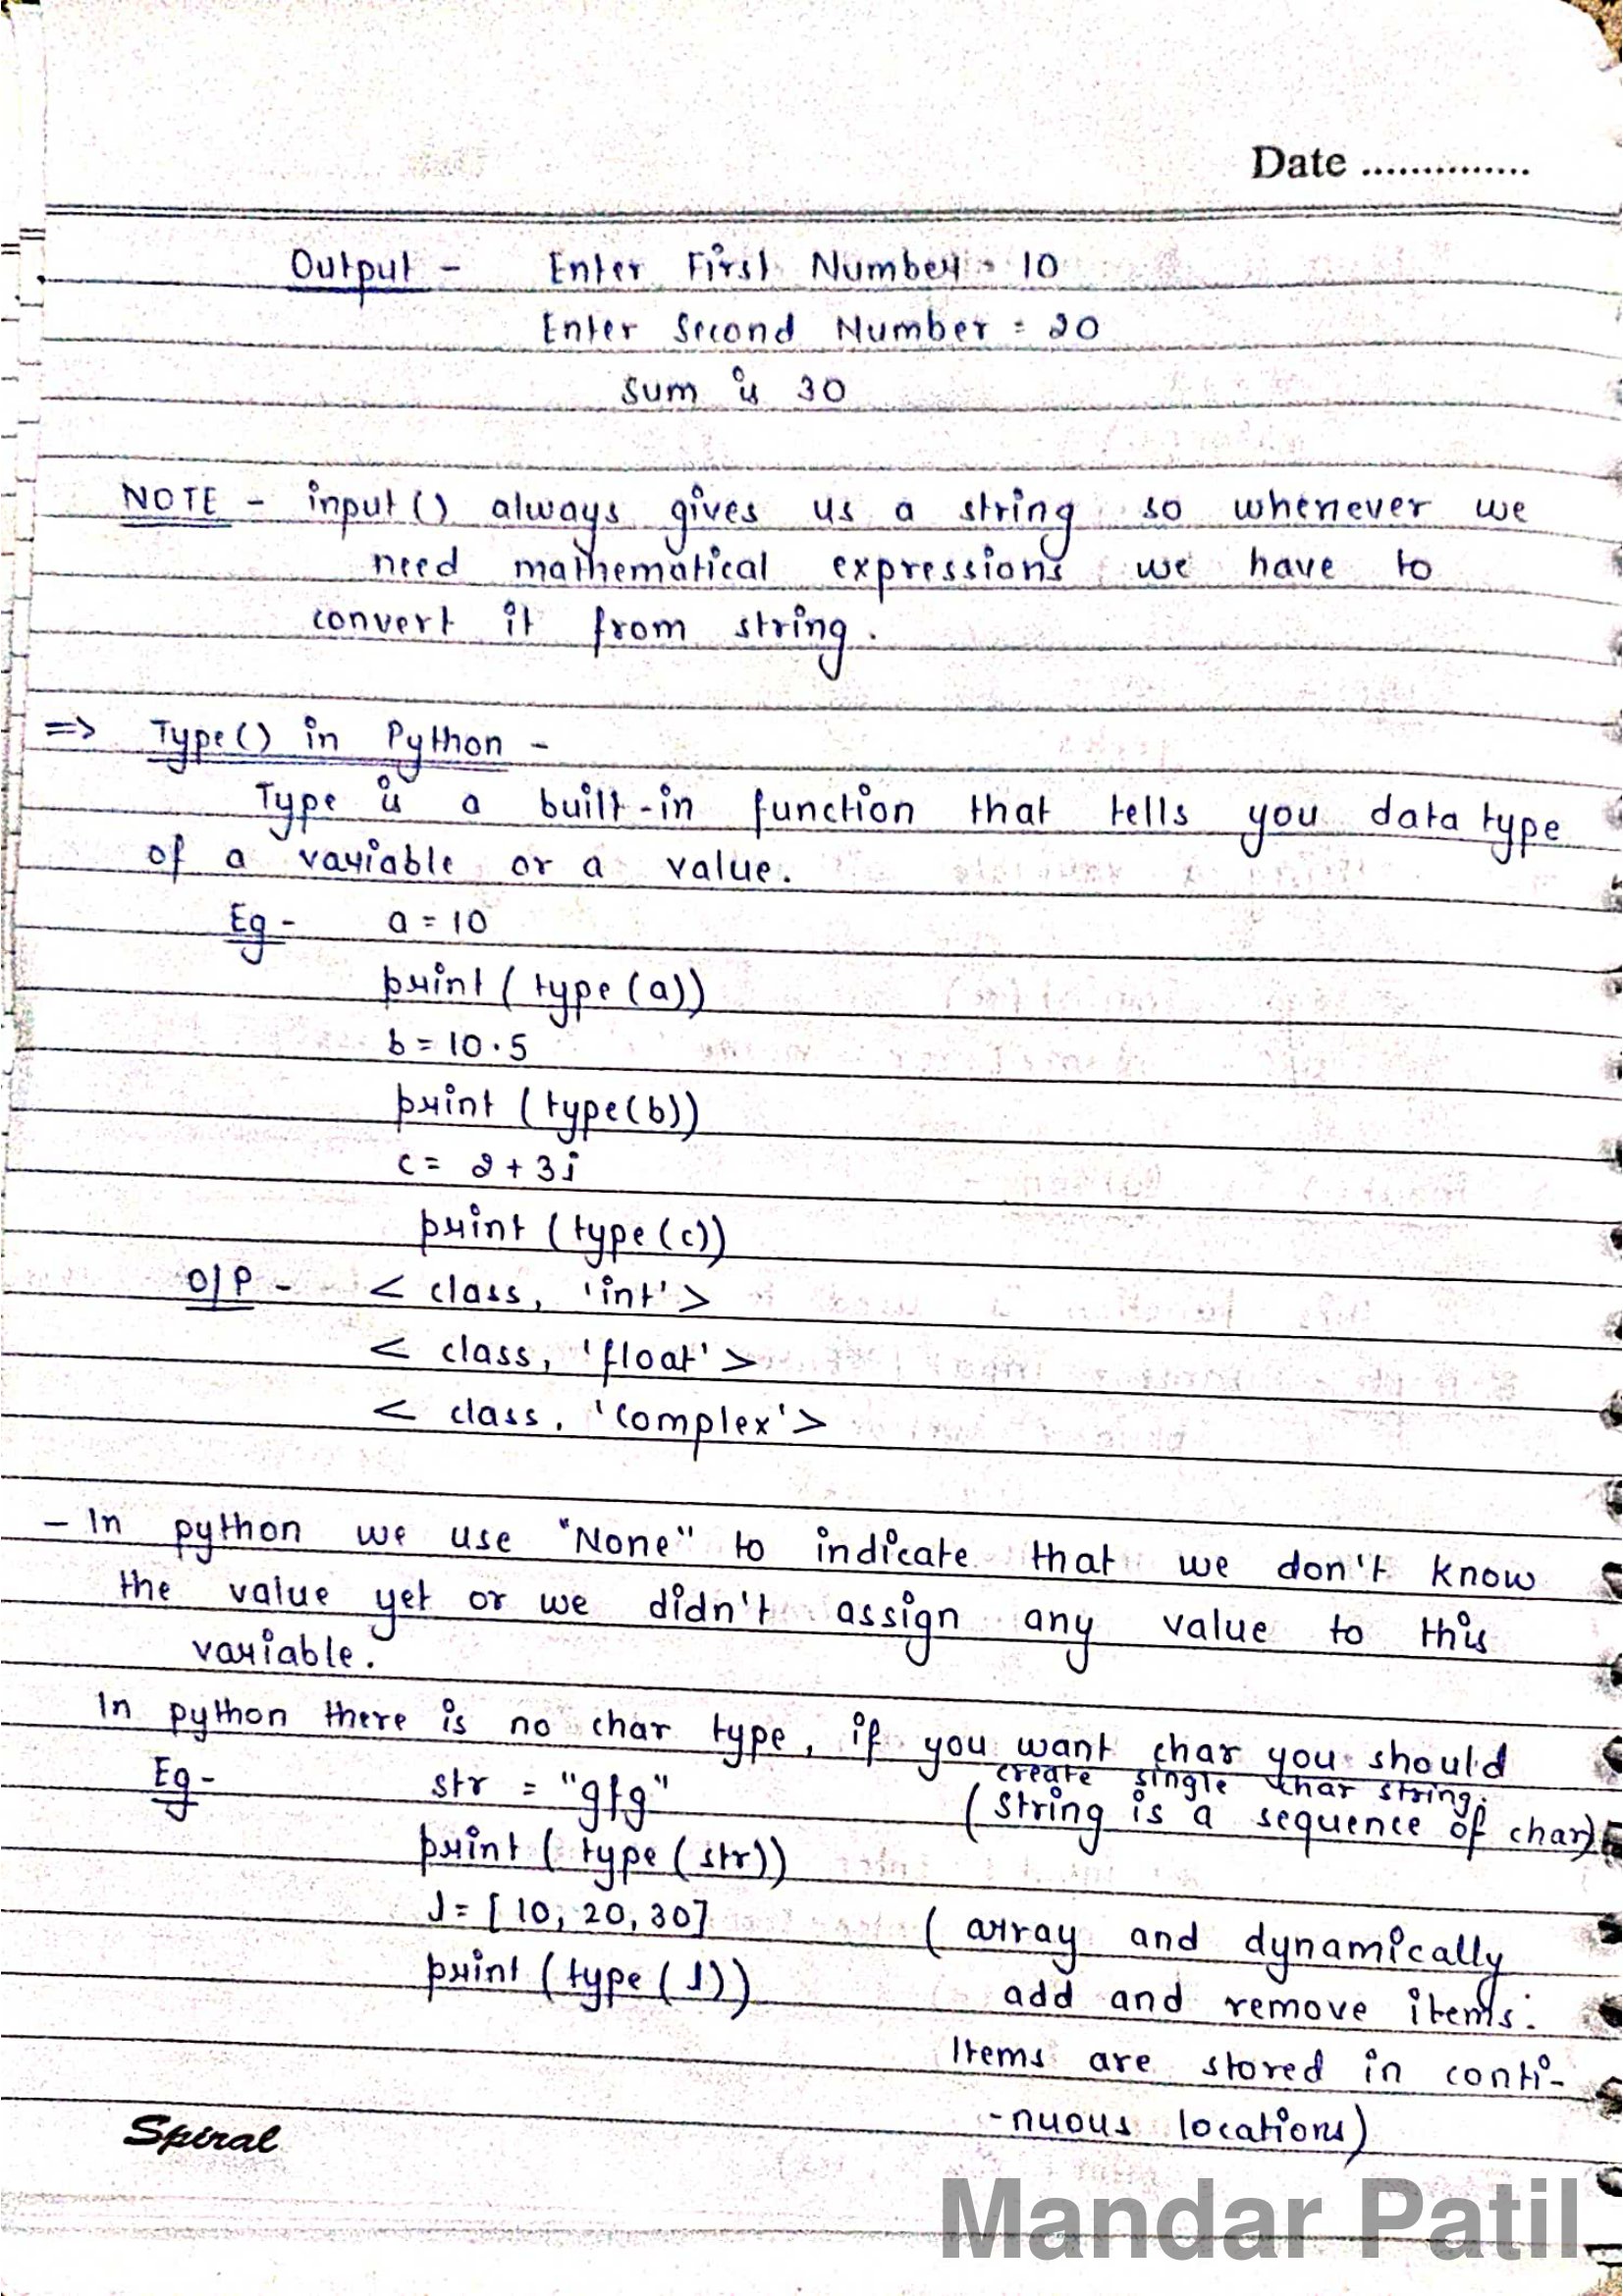 Date ...............
Output - Enter First Number = 10
Enter Second Number = 20
Sum is 30
NOTE - input() always gives us a string so whenever we
need mathematical expressions we have to
convert it from string.
=> Type() in Python -
Type is a built-in function that tells you data type
of a variable or a value.
Eg - a = 10
print ( type (a))
b = 10.5
print ( type(b))
c = 2 + 3j
print ( type (c))
O/P - < class, 'int' >
< class, 'float' >
< class, 'complex' >
- In python we use "None" to indicate that we don't know
the value yet or we didn't assign any value to this
variable.
In python there is no char type, if you want char you should
create single char string.
Eg - str = "gfg" ( String is a sequence of char)
print ( type ( str))
l = [ 10, 20, 30] ( array and dynamically
print ( type ( l)) add and remove items.
Items are stored in conti-
-nuous locations)
Spiral
Mandar Patil